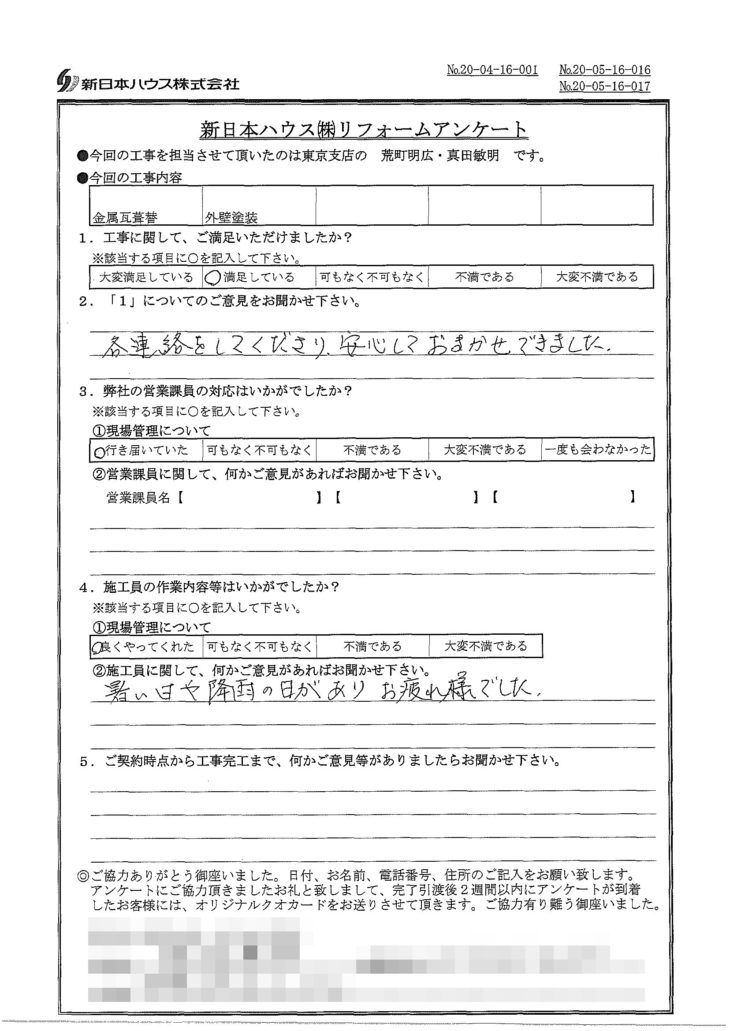 №20-04-16-001 №20-05-16-016
新日本ハウス株式会社 №20-05-16-017
新日本ハウス㈱リフォームアンケート
●今回の工事を担当させて頂いたのは東京支店の 荒町明広・真田敏明 です。
●今回の工事内容
金属瓦葺替 外壁塗装
1．工事に関して、ご満足いただけましたか？
※該当する項目に○を記入して下さい。
大変満足している ○満足している 可もなく不可もなく 不満である 大変不満である
2．「1」についてのご意見をお聞かせ下さい。
各連絡をしてくださり、安心しておまかせできました.
3．弊社の営業課員の対応はいかがでしたか？
※該当する項目に○を記入して下さい。
①現場管理について
○行き届いていた 可もなく不可もなく 不満である 大変不満である 一度も会わなかった
②営業課員に関して、何かご意見があればお聞かせ下さい。
営業課員名【 】【 】【 】
4．施工員の作業内容等はいかがでしたか？
※該当する項目に○を記入して下さい。
①現場管理について
○良くやってくれた 可もなく不可もなく 不満である 大変不満である
②施工員に関して、何かご意見があればお聞かせ下さい。
暑い日や降雨の日があり お疲れ様でした.
5．ご契約時点から工事完工まで、何かご意見等がありましたらお聞かせ下さい。
◎ご協力ありがとう御座いました。日付、お名前、電話番号、住所のご記入をお願い致します。
アンケートにご協力頂きましたお礼と致しまして、完了引渡後2週間以内にアンケートが到着
したお客様には、オリジナルクオカードをお送りさせて頂きます。ご協力有り難う御座いました。